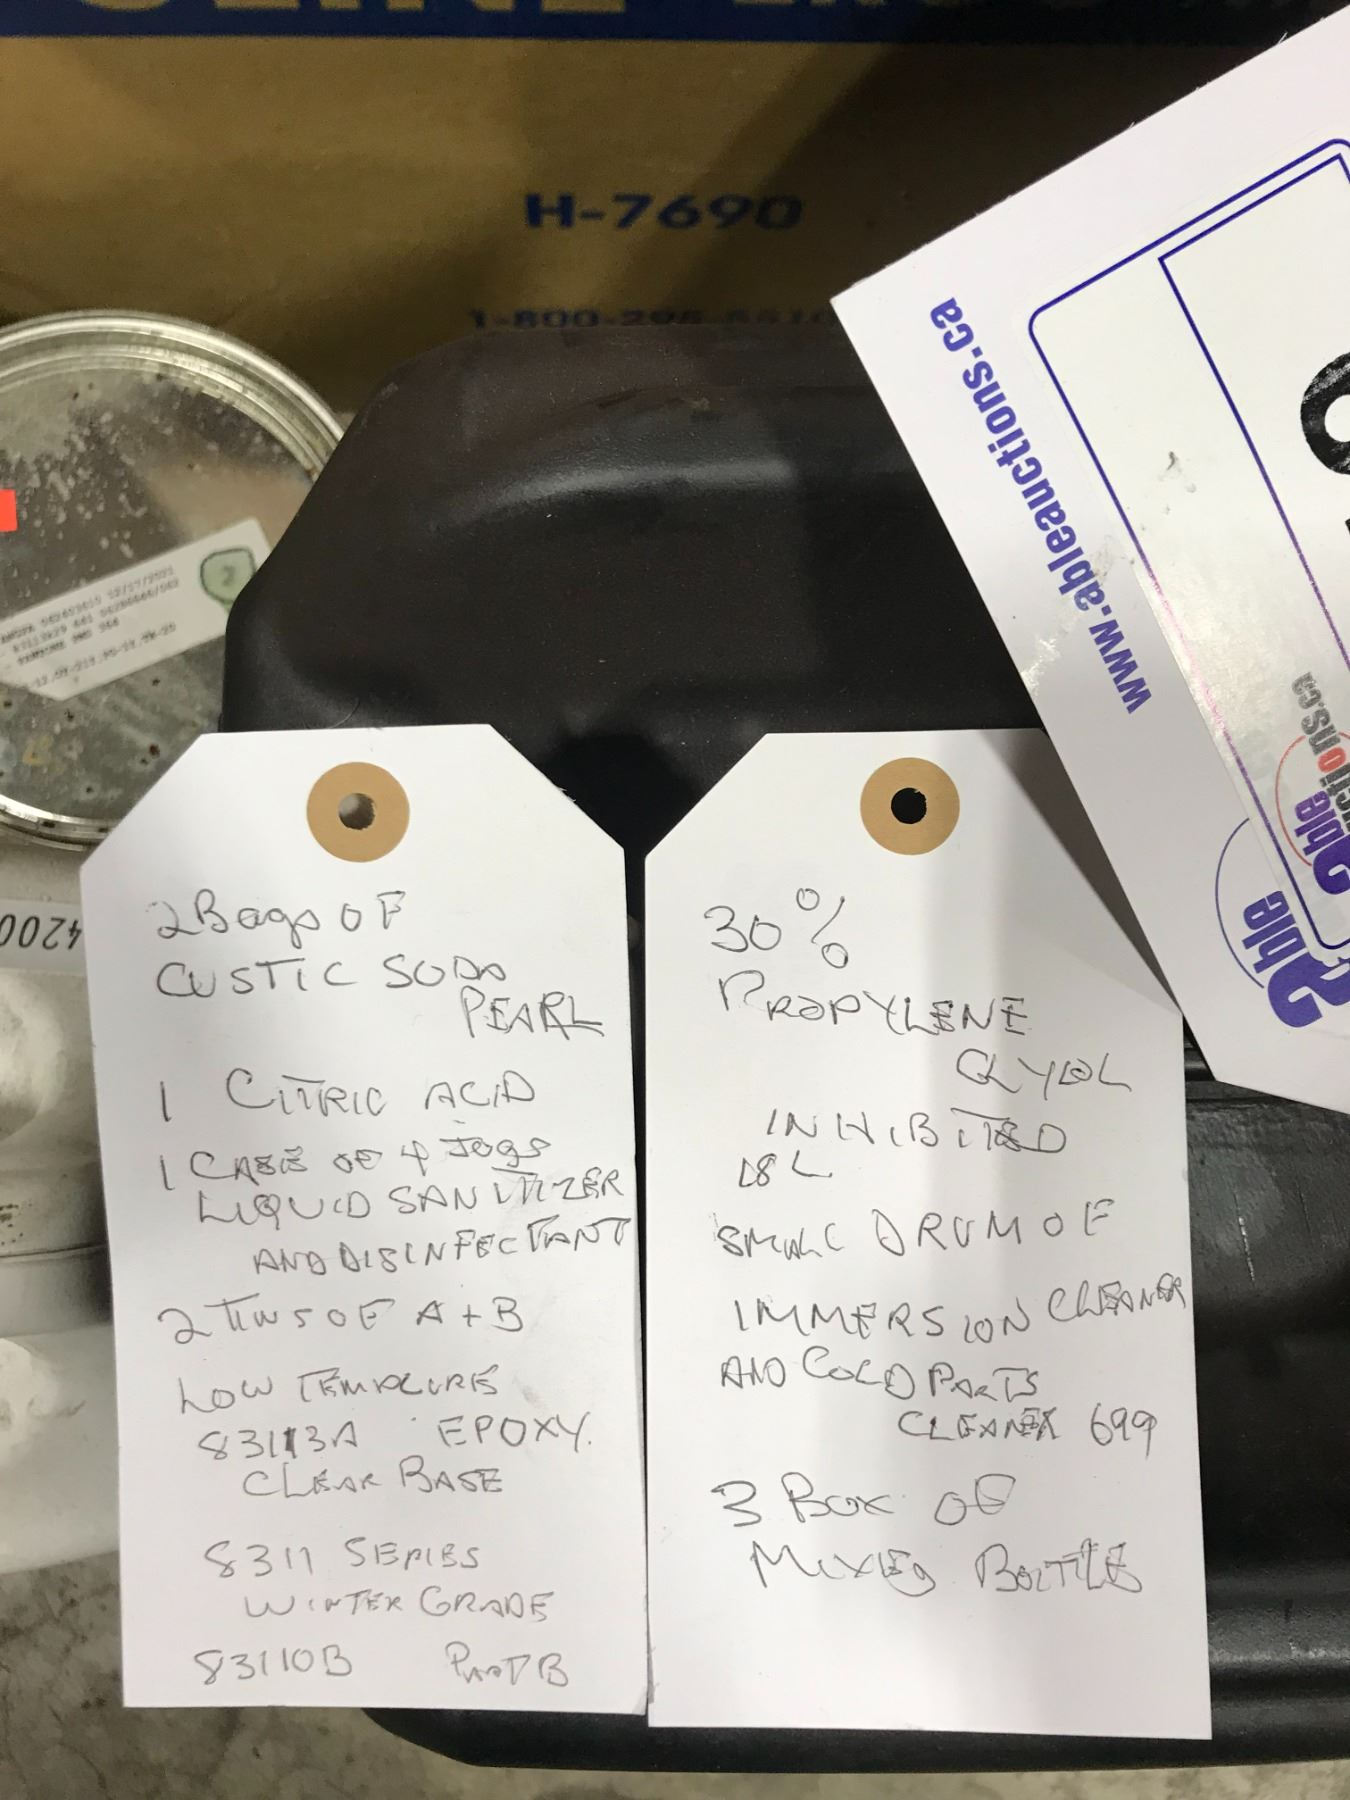 H-7690
www.ableauctions.ca
4200
2 Bags OF
CUSTIC SODA
PEARL
1 CITRIC ACID
1 CASE OF 4 JOGS
LIQUID SANITIZER
AND DISINFECTANT
2 TINS OF A + B
LOW TEMPLURE
83113A EPOXY.
CLEAR BASE
8311 SERIES
WINTER GRADE
83110B PART B
30%
PROPYLENE
GLYCOL
INHIBITED
18 L
SMALL DRUM OF
IMMERSION CLEANER
AND COLD PARTS
CLEANER 699
3 BOX OF
MIXED BOTTLE
able
able